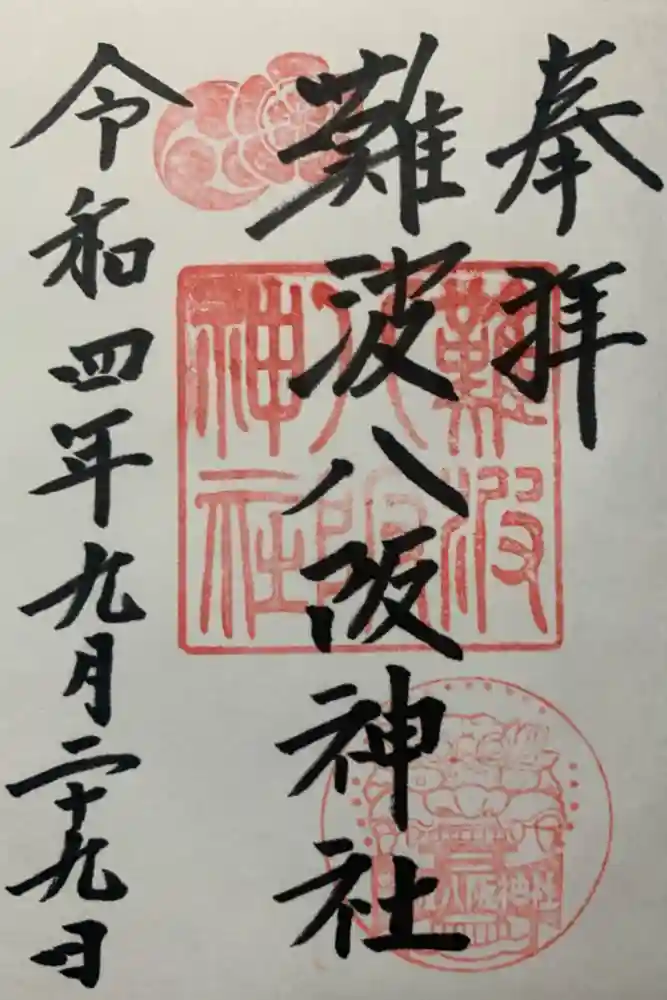 奉拝
難波八阪神社
令和四年九月二十九日
難波
八阪
神社
難波八阪神社